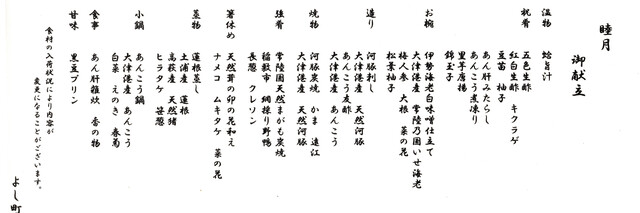 睦月
御献立
温物 蛤旨汁
祝肴 五色生酢
紅白生酢 キクラゲ
豆苗 柚子
あん肝みたらし
あんこう煮凍り
里芋唐揚
錦玉子
お椀 伊勢海老白味噌仕立て
大津港産 常陸乃国いせ海老
梅人参 大根 菜の花
松葉柚子
造り 河豚刺し
大津港産 天然河豚
あんこう友酢
大津港産 あんこう
焼物 河豚炭焼 かま 遠江
大津港産 天然河豚
強肴 常陸国天然まがも炭焼
稲敷市 網採り野鴨
長葱 クレソン
箸休め 天然茸の卯の花和え
ナメコ ムキタケ 菜の花
蒸物 蓮根蒸し
土浦産 蓮根
高萩産 天然猪
ヒラタケ 笹葱
小鍋 あんこう鍋
大津港産 あんこう
白菜 えのき 春菊
食事 あん肝雑炊 香の物
甘味 黒豆プリン
食材の入荷状況により内容が
変更になることがございます。
よし町